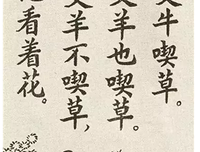 牛喫草。
羊也喫草。
羊不喫草,
看着花。